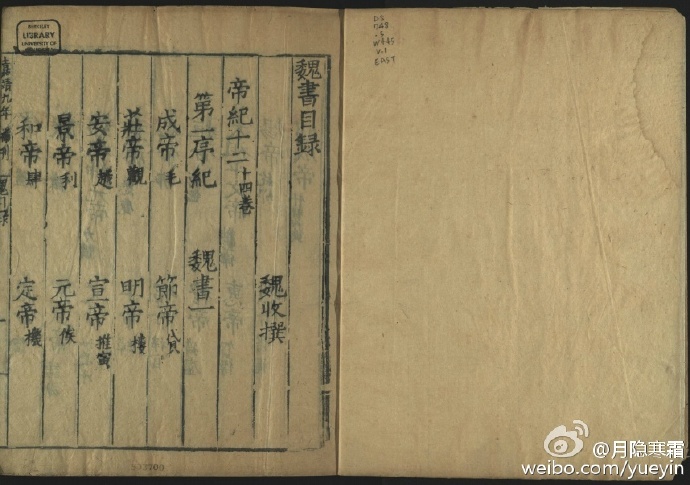 魏書目録
魏收撰
帝紀十二十四卷
第一序紀 魏書一
成帝毛 節帝貸
莊帝觀 明帝樓
安帝越 宣帝推寅
景帝利 元帝俟
和帝肆 定帝機
嘉靖九年補刊
LIBRARY
UNIVERSITY OF
DS
748
V.1
EAST
@月隐寒霜
weibo.com/yueyin